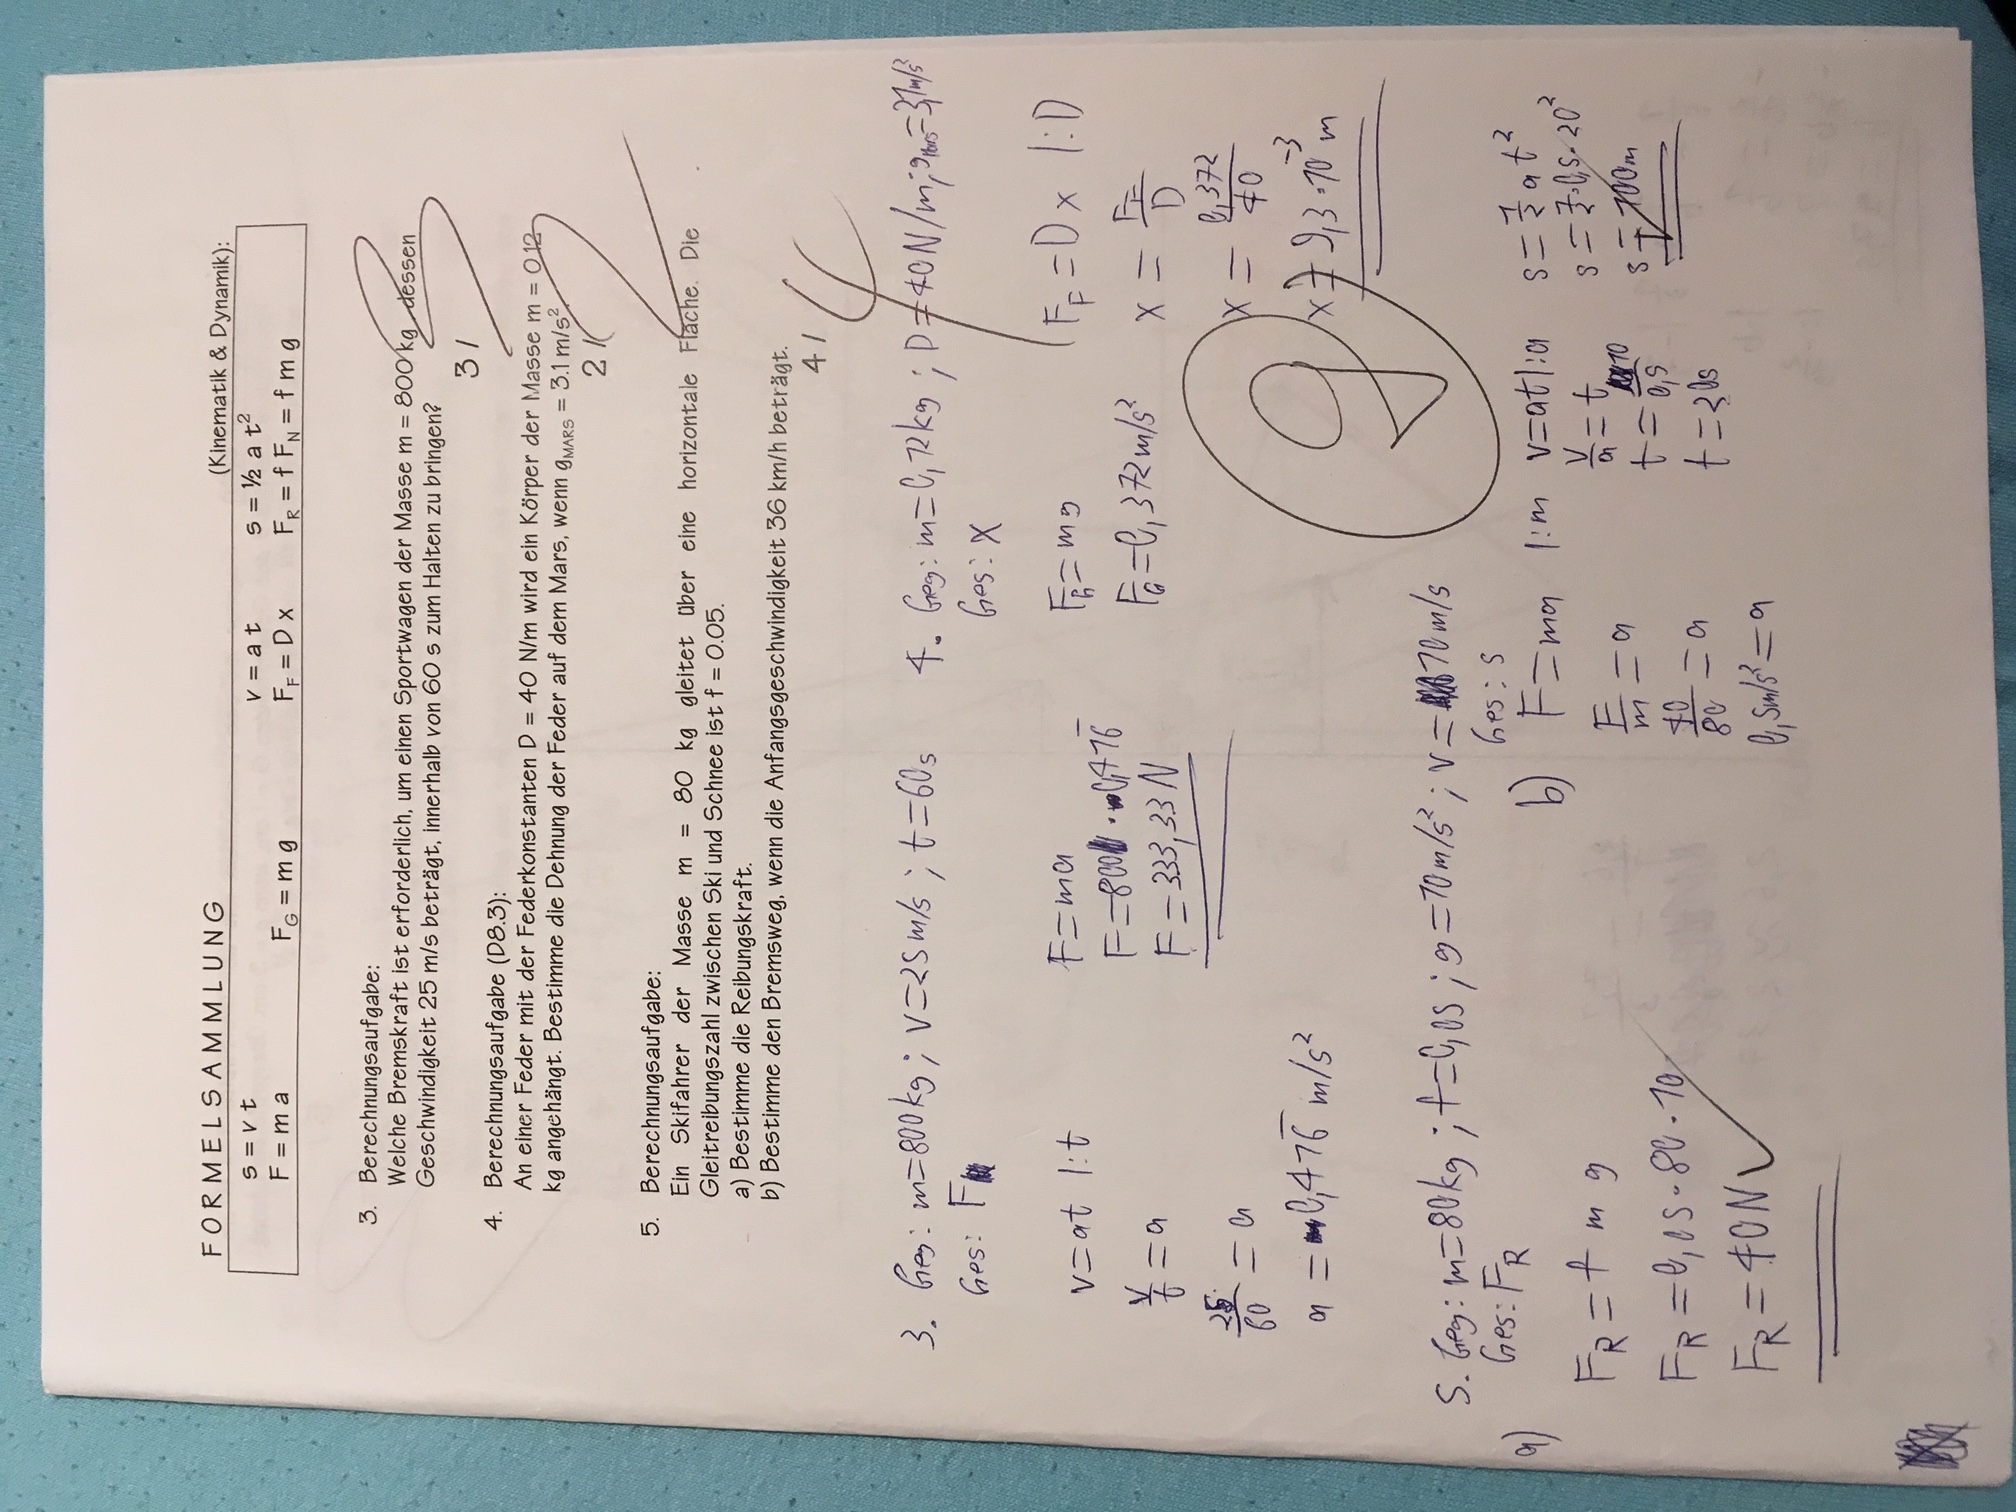 FORMELSAMMLUNG (Kinematik & Dynamik):
s = v t v = a t s = ½ a t²
F = m a F_G = m g F_F = D x F_R = f F_N = f m g
3. Berechnungsaufgabe:
Welche Bremskraft ist erforderlich, um einen Sportwagen der Masse m = 800 kg, dessen
Geschwindigkeit 25 m/s beträgt, innerhalb von 60 s zum Halten zu bringen?
3 / 3
4. Berechnungsaufgabe (D8.3):
An einer Feder mit der Federkonstanten D = 40 N/m wird ein Körper der Masse m = 0.12
kg angehängt. Bestimme die Dehnung der Feder auf dem Mars, wenn g_MARS = 3.1 m/s².
2 / 2
5. Berechnungsaufgabe:
Ein Skifahrer der Masse m = 80 kg gleitet über eine horizontale Fläche. Die
Gleitreibungszahl zwischen Ski und Schnee ist f = 0.05.
a) Bestimme die Reibungskraft.
b) Bestimme den Bremsweg, wenn die Anfangsgeschwindigkeit 36 km/h beträgt.
4 / 4
3. Geg: m=800kg; v=25m/s; t=60s
Ges: F
v=at |:t
v/t = a
25/60 = a
a = 0,416̅ m/s²
F=ma
F=800 · 0,416̅
F=333,33N
4. Geg: m=0,12kg; D=40N/m; g_Mars=3,1m/s²
Ges: x
F_G=mg
F_G=0,372m/s²
F_F=Dx |:D
x = F_F/D
x = 0,372/40
x = 9,3·10⁻³m
9
5. Geg: m=80kg; f=0,05; g=10m/s²; v=10m/s
Ges: F_R
a)
F_R = f m g
F_R = 0,05·80·10
F_R = 40N ✓
Ges: s
b) F=ma |:m
F/m = a
40/80 = a
0,5m/s² = a
v=at |:a
v/a = t
t = 10/0,5
t = 20s
s = 1/2 a t²
s = 1/2·0,5·20²
s = 100m ✓